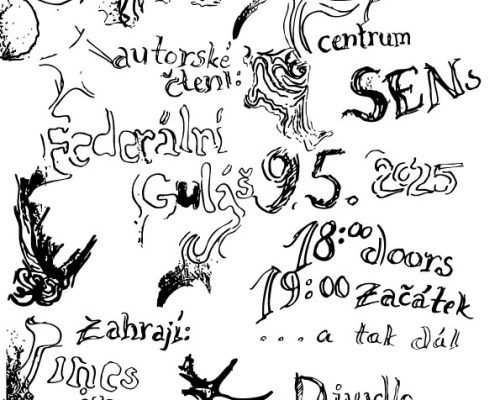 centrum
SENs
autorské
čtení:
Federální
Guláš
9.5. 2025
18:00 doors
19:00 začátek
... a tak dál
Zahrají:
Pincs
Divadlo